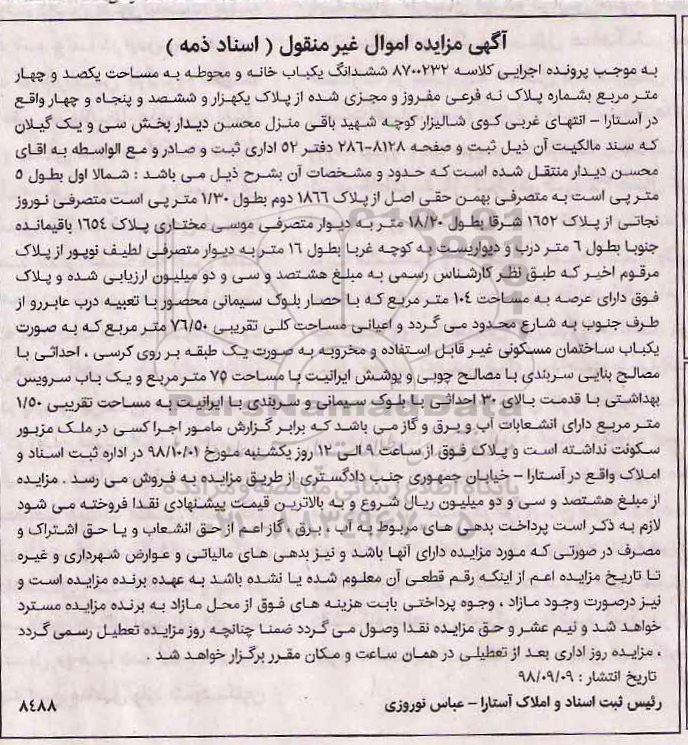 آگهی مزایده اموال غیر منقول ( اسناد ذمه )
به موجب پرونده اجرایی کلاسه ۸۷۰۰۲۳۲ ششدانگ یکباب خانه و محوطه به مساحت یکصد و چهار
متر مربع بشماره پلاک نه فرعی مفروز و مجزی شده از پلاک یکهزار و ششصد و پنجاه و چهار واقع
در آستارا – انتهای غربی کوی شالیزار کوچه شهید باقی منزل محسن دیدار بخش سی و یک گیلان
که سند مالکیت آن ذیل ثبت و صفحه ۸۱۲۸-۲۸۶ دفتر ۵۲ اداری ثبت و صادر و مع الواسطه به اقای
محسن دیدار منتقل شده است که حدود و مشخصات آن بشرح ذیل می باشد : شمالا اول بطول ۵
متر پی است به متصرفی بهمن حقی اصل از پلاک ۱۸۶۶ دوم بطول ۱/۳۰ متر پی است متصرفی نوروز
نجاتی از پلاک ۱۶۵۲ شرقا بطول ۱۸/۲۰ متر به دیوار متصرفی موسی مختاری پلاک ۱۶۵۴ باقیمانده
جنوبا بطول ۶ متر درب و دیواریست به کوچه غربا بطول ۱۶ متر به دیوار متصرفی لطیف نوپور از پلاک
مرقوم اخیر که طبق نظر کارشناس رسمی به مبلغ هشتصد و سی و دو میلیون ارزیابی شده و پلاک
فوق دارای عرصه به مساحت ۱۰۴ متر مربع که با حصار بلوک سیمانی محصور با تعبیه درب عابررو از
طرف جنوب به شارع محدود می گردد و اعیانی مساحت کلی تقریبی ۷۶/۵۰ متر مربع که به صورت
یکباب ساختمان مسکونی غیر قابل استفاده و مخروبه به صورت یک طبقه بر روی کرسی ، احداثی با
مصالح بنایی سربندی با مصالح چوبی و پوشش ایرانیت با مساحت ۷۵ متر مربع و یک باب سرویس
بهداشتی با قدمت بالای ۳۰ احداثی با بلوک سیمانی و سربندی با ایرانیت به مساحت تقریبی ۱/۵۰
متر مربع دارای انشعابات آب و برق و گاز می باشد که برابر گزارش مامور اجرا کسی در ملک مزبور
سکونت نداشته است و پلاک فوق از ساعت ۹ الی ۱۲ روز یکشنبه مورخ ۹۸/۱۰/۰۱ در اداره ثبت اسناد و
املاک واقع در آستارا – خیابان جمهوری جنب دادگستری از طریق مزایده به فروش می رسد . مزایده
از مبلغ هشتصد و سی و دو میلیون ریال شروع و به بالاترین قیمت پیشنهادی نقدا فروخته می شود
لازم به ذکر است پرداخت بدهی های مربوط به آب ، برق ، گاز اعم از حق انشعاب و یا حق اشتراک و
مصرف در صورتی که مورد مزایده دارای آنها باشد و نیز بدهی های مالیاتی و عوارض شهرداری و غیره
تا تاریخ مزایده اعم از اینکه رقم قطعی آن معلوم شده یا نشده باشد به عهده برنده مزایده است و
نیز درصورت وجود مازاد ، وجوه پرداختی بابت هزینه های فوق از محل مازاد به برنده مزایده مسترد
خواهد شد و نیم عشر و حق مزایده نقدا وصول می گردد ضمنا چنانچه روز مزایده تعطیل رسمی گردد
، مزایده روز اداری بعد از تعطیلی در همان ساعت و مکان مقرر برگزار خواهد شد .
تاریخ انتشار : ۹۸/۰۹/۰۹
رئیس ثبت اسناد و املاک آستارا – عباس نوروزی
۸۴۸۸
ParsNamadData